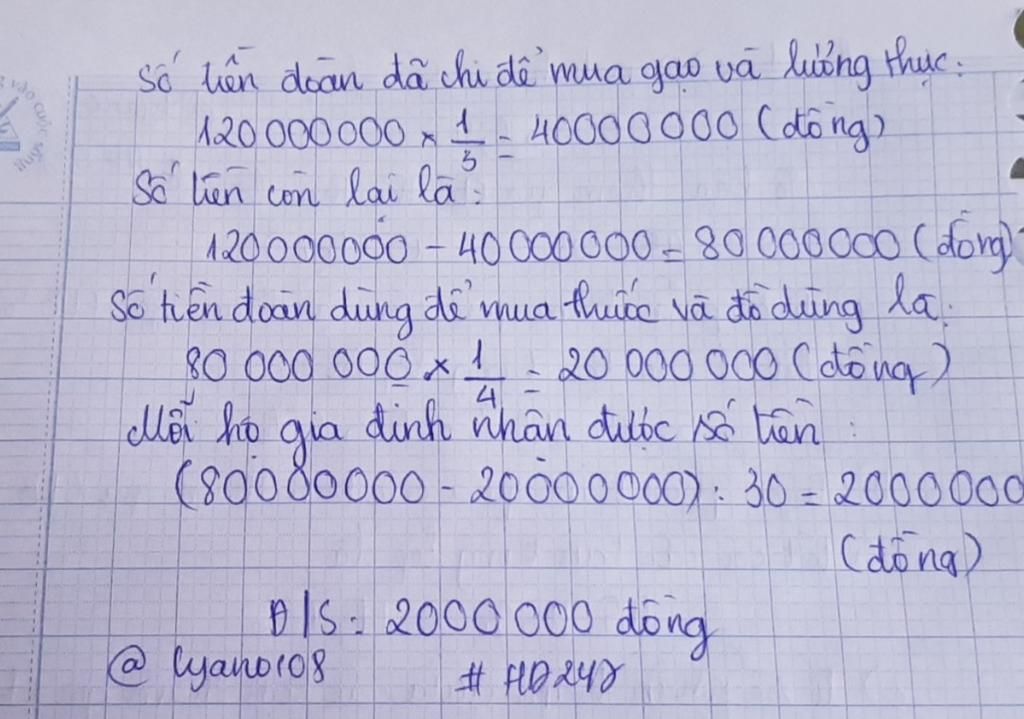 Số tiền đoàn đã chi để mua gạo và lương thực:
120000000 × 1/3 = 40000000 (đồng)
Số tiền còn lại là:
120000000 - 40000000 = 80000000 (đồng)
Số tiền đoàn dùng để mua thuốc và đồ dùng là:
80 000 000 × 1/4 = 20 000 000 (đồng)
Mỗi hộ gia đình nhận được số tiền:
(80000000 - 20000000) : 30 = 2000000
(đồng)
Đ/S: 2000 000 đồng
@ lyano108 # HD247